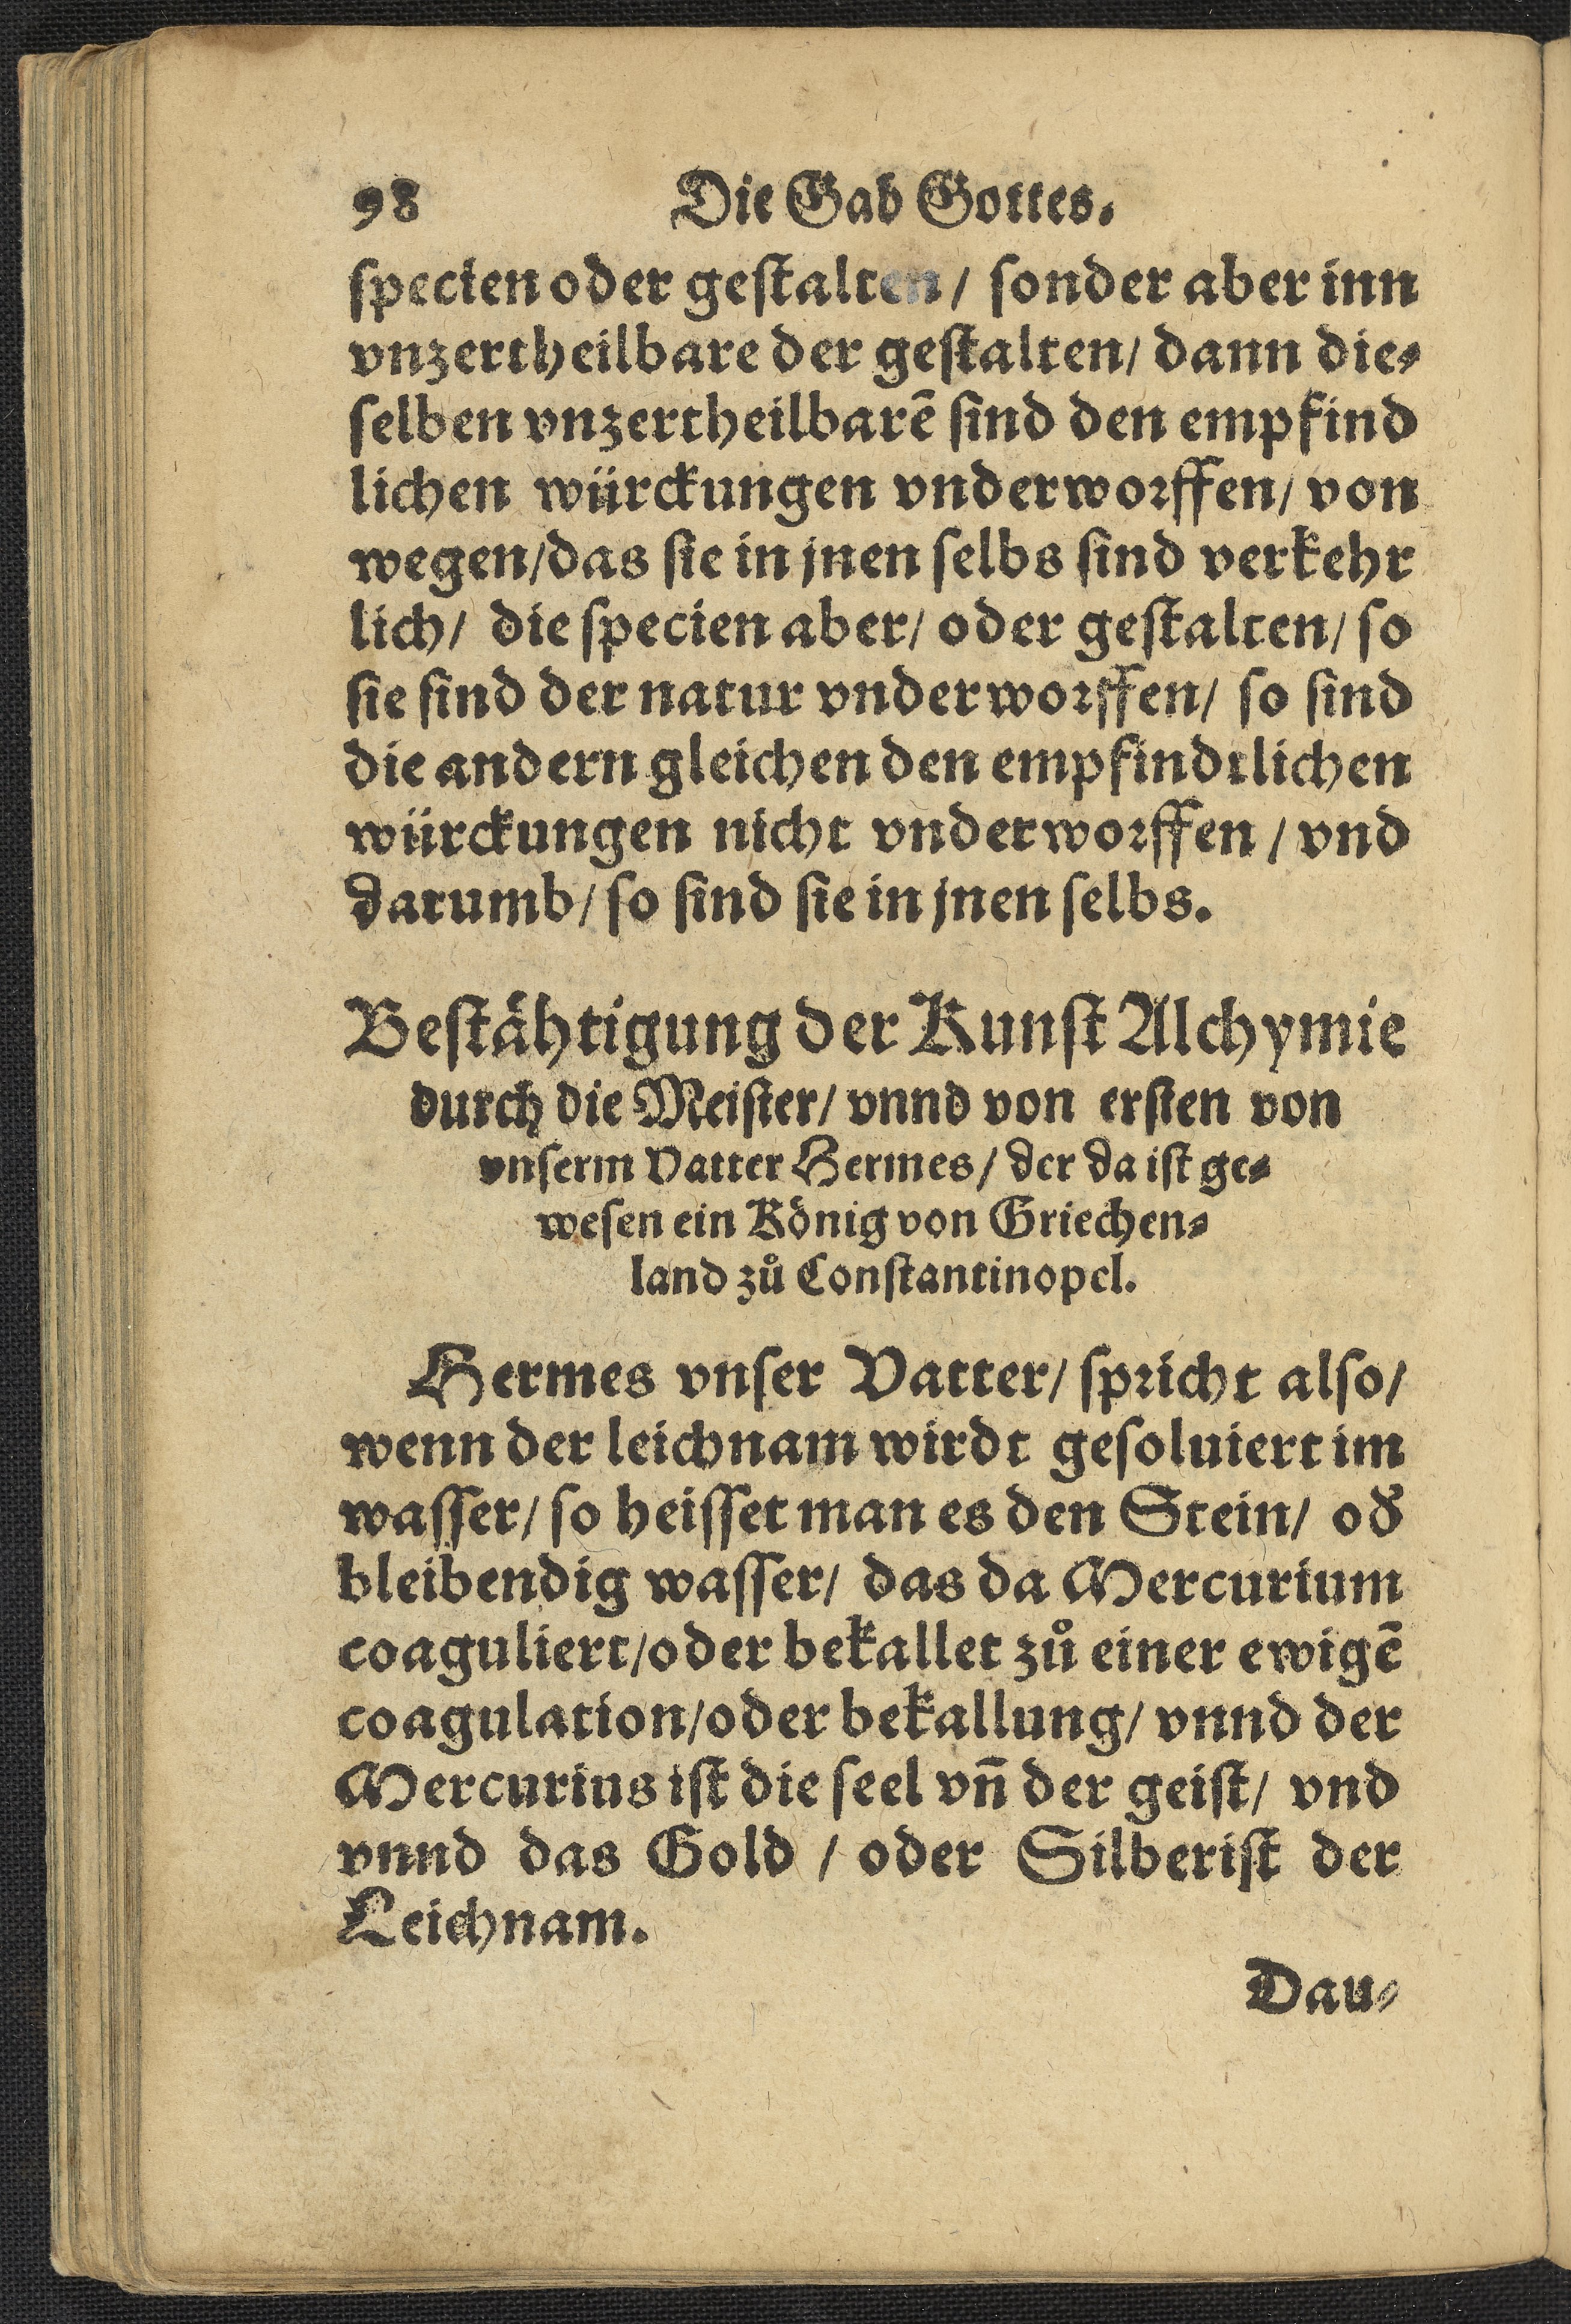 98 Die Gab Gottes.
ſpecien oder geſtalten/ ſonder aber inn
vnzertheilbare der geſtalten/ dann die⸗
ſelben vnzertheilbarē ſind den empfind
lichen würckungen vnderworffen/ von
wegen/das ſie in jnen ſelbs ſind verkehr
lich/ die ſpecien aber/ oder geſtalten/ ſo
ſie ſind der natur vnderworffen/ ſo ſind
die andern gleichen den empfindtlichen
würckungen nicht vnderworffen / vnd
darumb/ ſo ſind ſie in jnen ſelbs.
Beſtähtigung der Kunſt Alchymie
durch die Meiſter/ vnnd von erſten von
vnſerm Vatter Hermes/ der da iſt ge⸗
weſen ein König von Griechen⸗
land zů Conſtantinopel.
Hermes vnſer Vatter/ ſpricht alſo/
wenn der leichnam wirdt geſoluiert im
waſſer/ ſo heiſſet man es den Stein/ od̕
bleibendig waſſer/ das da Mercurium
coaguliert/oder bekallet zů einer ewigē
coagulation/oder bekallung/ vnnd der
Mercurius iſt die ſeel vn̄ der geiſt/ vnd
vnnd das Gold / oder Silberiſt der
Leichnam.
Dau⸗